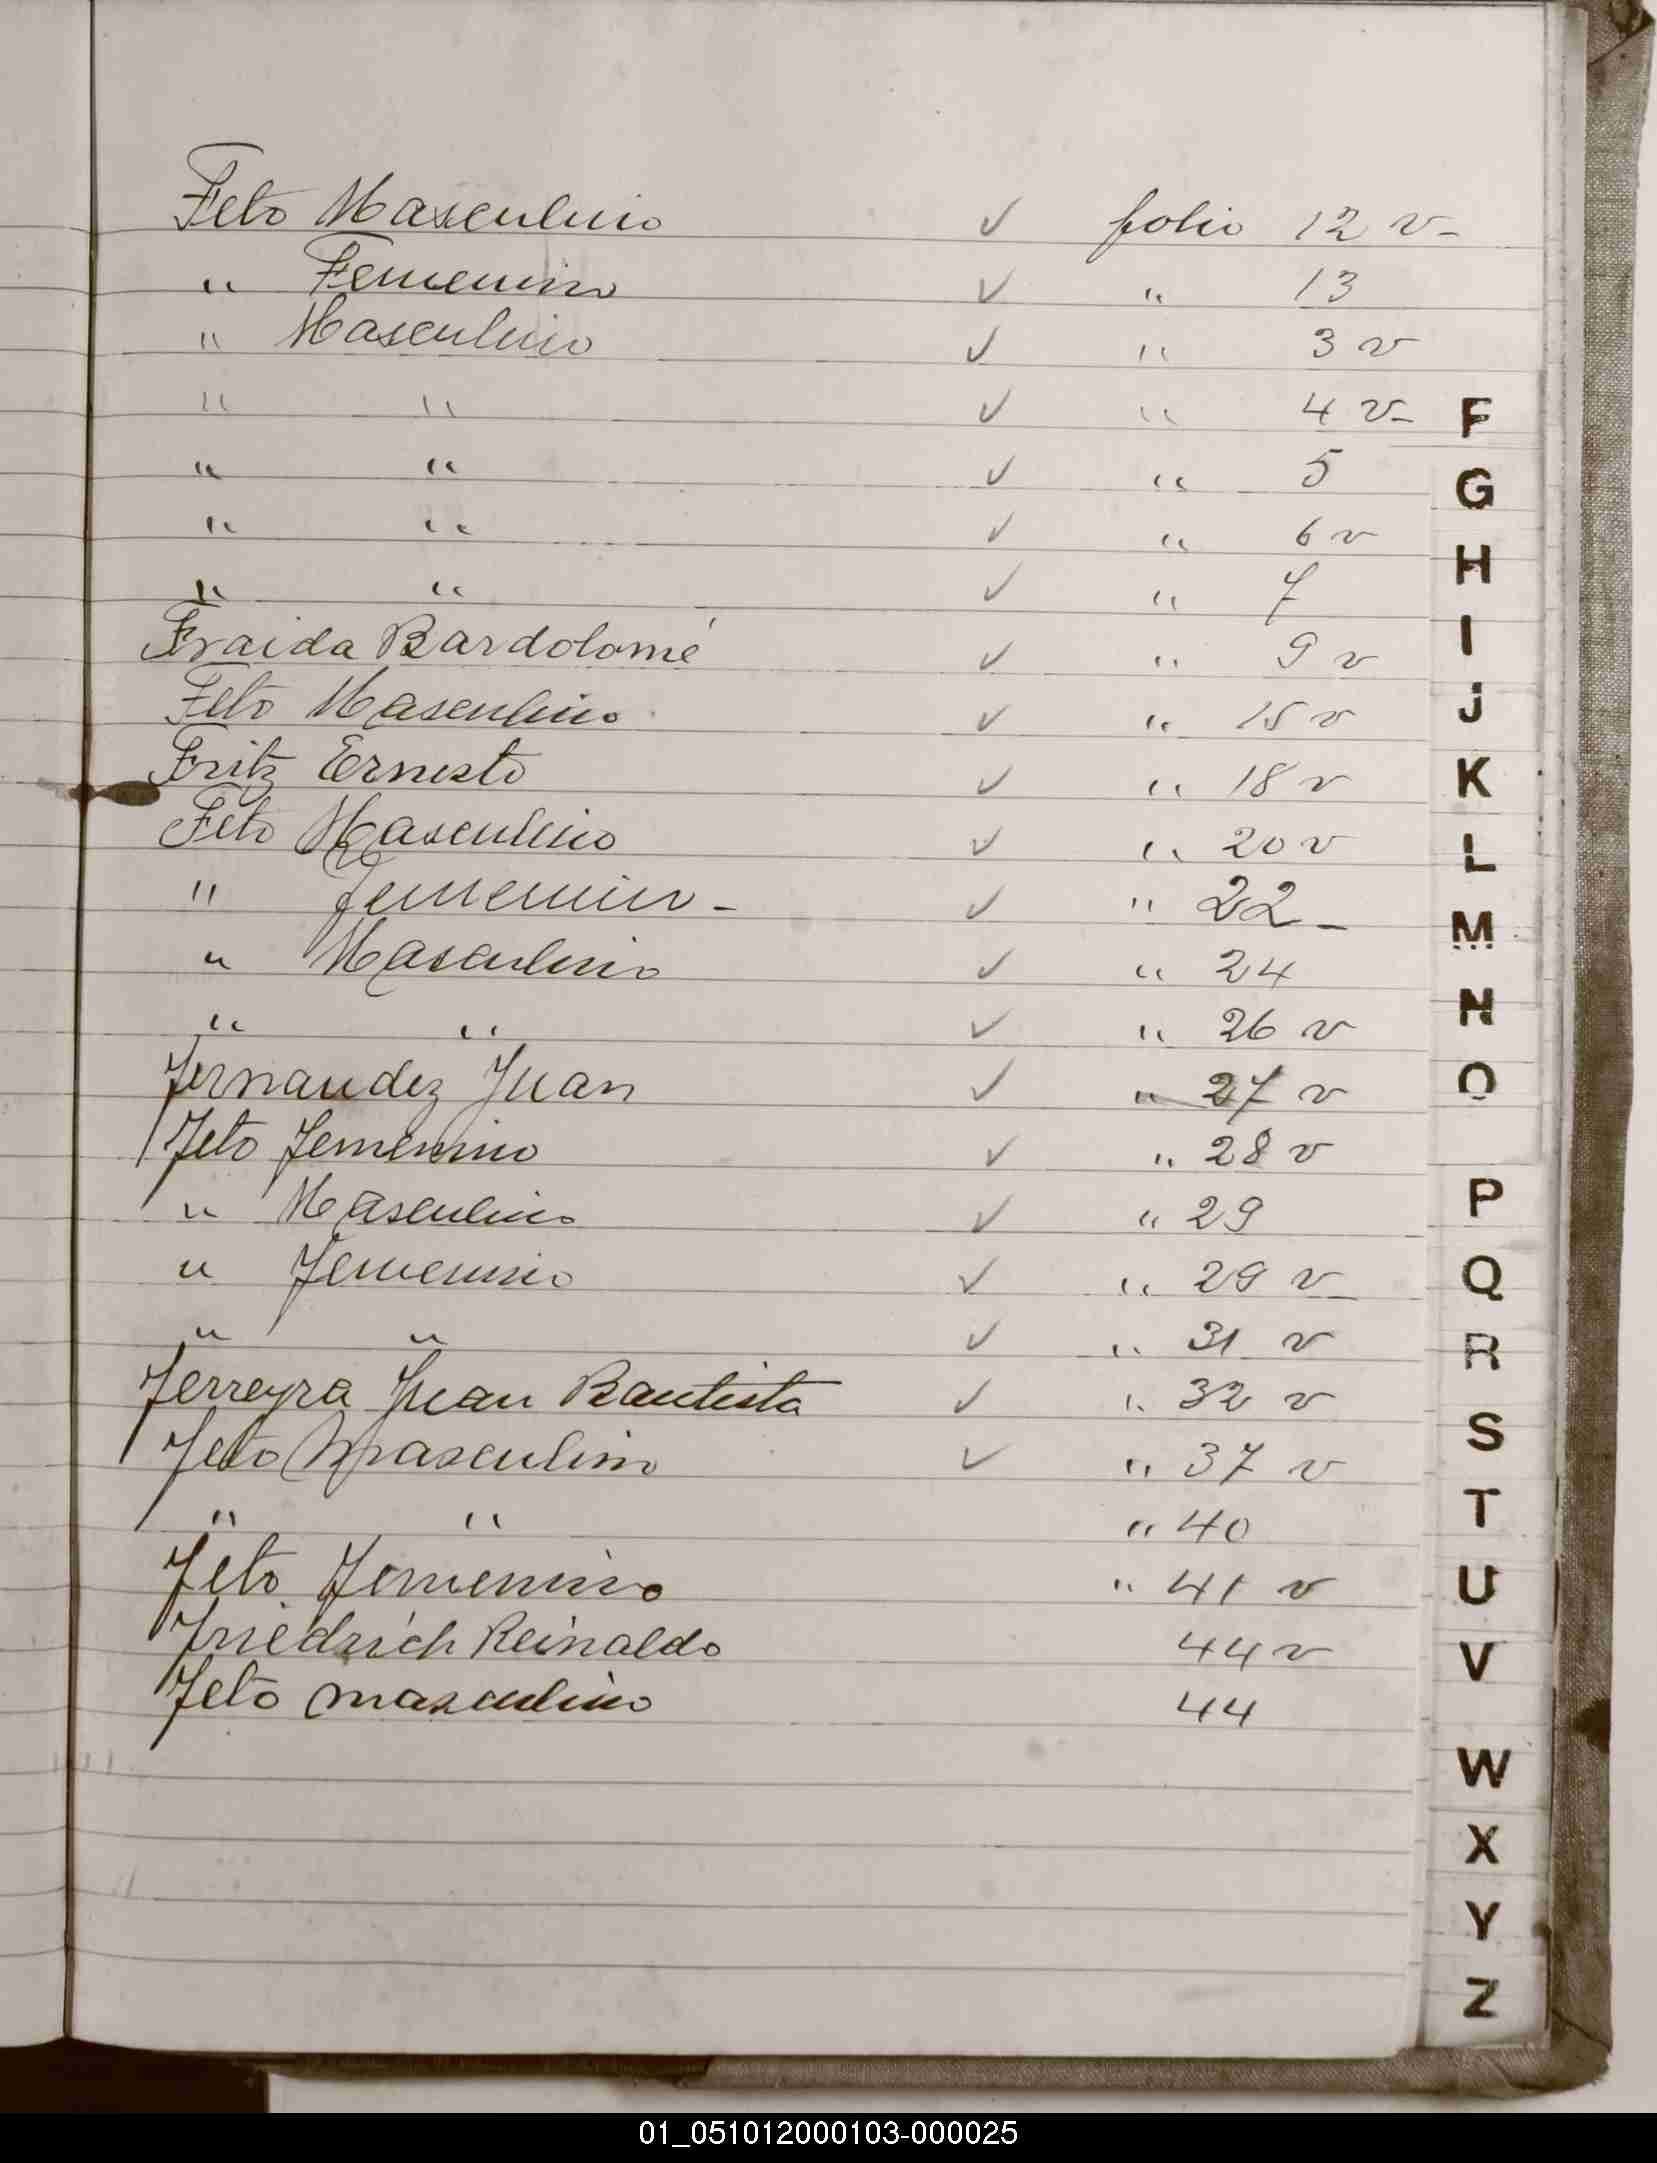 Feto Masculino ✓ folio 12 v-
" Femenino ✓ " 13
" Masculino ✓ " 3 v
" " ✓ " 4 v-
" " ✓ " 5
" " ✓ " 6 v
" " ✓ " 7
Fraida Bardolomé ✓ " 9 v
Feto Masculino ✓ " 15 v
Fritz Ernesto ✓ " 18 v
Feto Masculino ✓ " 20 v
" Femenino - ✓ " 22 -
" Masculino ✓ " 24
" " ✓ " 26 v
Fernandez Juan ✓ " 27 v
Feto Femenino ✓ " 28 v
" Masculino ✓ " 29
" Femenino ✓ " 29 v
" " ✓ " 31 v
Ferreyra Juan Bautista ✓ " 32 v
Feto Masculino ✓ " 37 v
" " " 40
Feto Femenino " 41 v
Friedrich Reinaldo 44 v
Feto masculino 44
F
G
H
I
J
K
L
M
N
O
P
Q
R
S
T
U
V
W
X
Y
Z
01_051012000103-000025